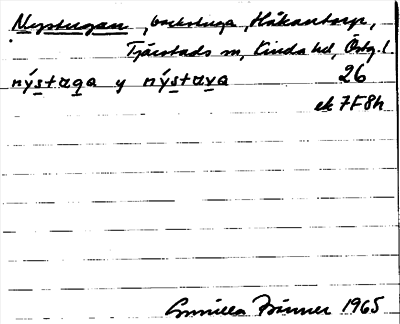 Nystugan, backstuga, Håkantorp,
Tjärstads sn, Kinda hd, Östg. l.
nýstaga y nýstava 26
ek 7F8h
Gunilla Brinner 1965